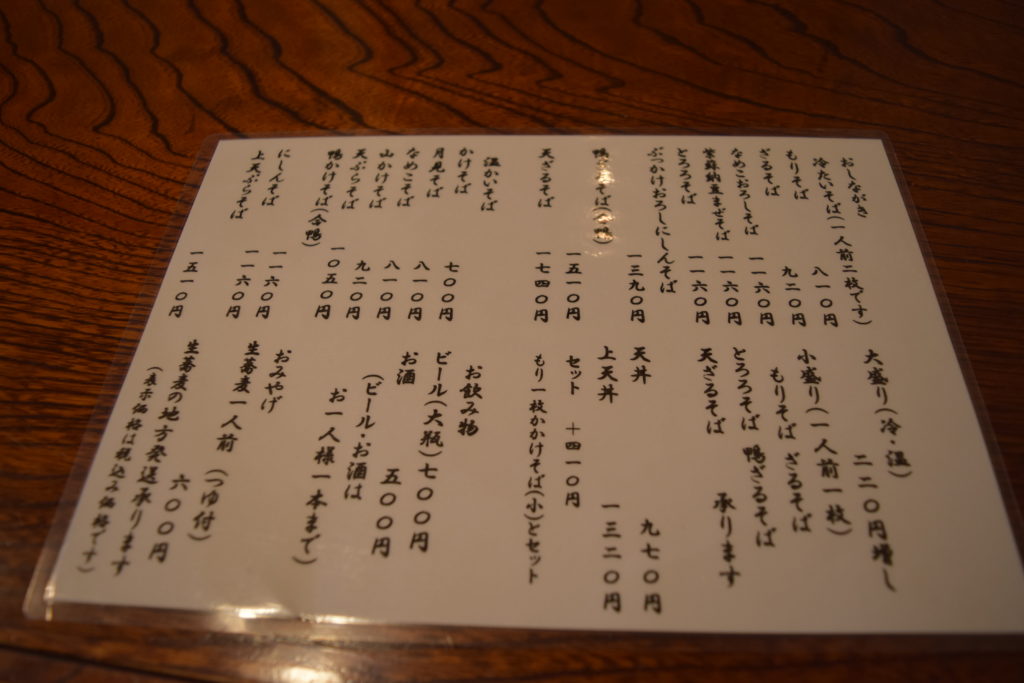 おしながき
冷たいそば(一人前二枚です)
もりそば 八一〇円
ざるそば 九二〇円
なめこおろしそば 一一六〇円
紫蘇納豆まぜそば 一一六〇円
とろろそば 一一六〇円
ぶっかけおろしにしんそば 一三九〇円
鴨ざるそば(合鴨) 一五一〇円
天ざるそば 一七四〇円
温かいそば
かけそば 七〇〇円
月見そば 八一〇円
なめこそば 八一〇円
山かけそば 九二〇円
天ぷらそば 一〇五〇円
鴨かけそば(合鴨) 一一六〇円
にしんそば 一一六〇円
上天ぷらそば 一五一〇円
大盛り(冷・温)
二二〇円増し
小盛り(一人前一枚)
もりそば ざるそば
とろろそば 鴨ざるそば
天ざるそば 承ります
天丼 九七〇円
上天丼 一三二〇円
セット +四一〇円
もり一枚かかけそば(小)とセット
お飲み物
ビール(大瓶)七〇〇円
お酒 五〇〇円
(ビール・お酒は
お一人様一本まで)
おみやげ
生蕎麦一人前(つゆ付)
六〇〇円
生蕎麦の地方発送承ります
(表示価格は税込み価格です)